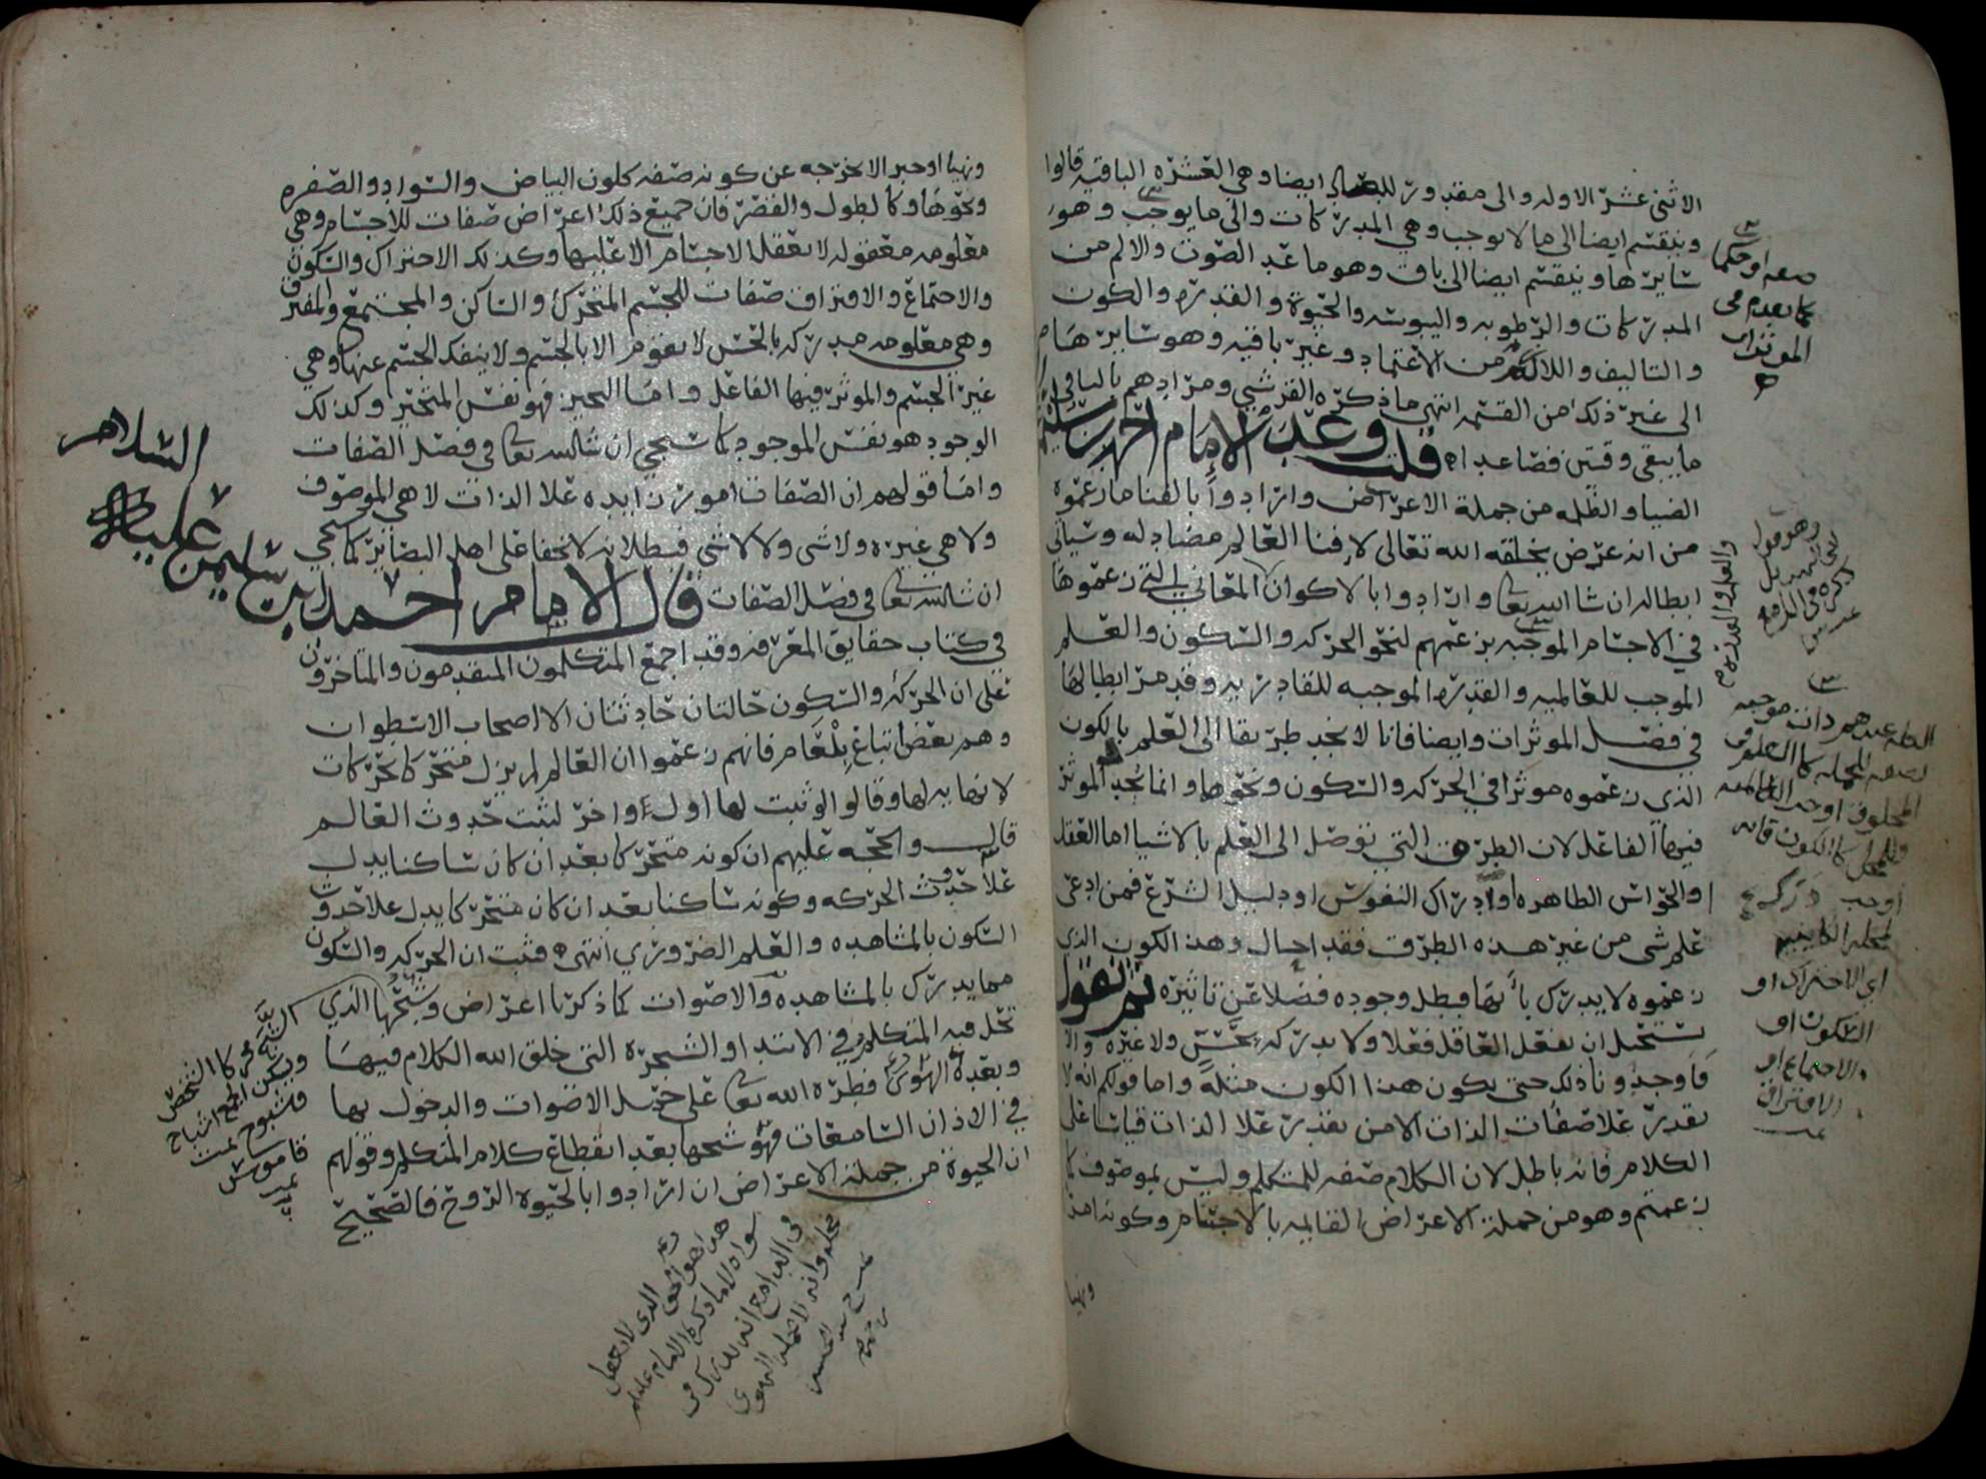 الاثنى عشر الاوله والى مقدور للعباد ايضا وهي العشره الباقيه قالوا
وينقسم ايضا الى ما لا يوجب وهي المدركات والى ما يوجب وهو
سايرها وينقسم ايضا الى باق وهو ما عدى الصوت والالم من
المدركات والرطوبه واليبوسه والحيوة والقدره والكون
والتاليف واللازم من الاعتماد وغير باقيه وهو سايرها
الى غير ذلك من القسمه انتهى ما ذكره القرشي ومرادهم بالباقي
ما يبقى وقتين فصاعدا قلت وعد الامام احمد بن سليمن
الضيا والظلمه من جملة الاعراض وارادوا بالفنا ما زعموه
من انه عرض يخلقه الله تعالى لافنا العالم مضاد له وسياتي
ابطاله ان شا الله تعا وارادوا بالاكوان المعاني التي زعموها
في الاجسام الموجبه بزعمهم لنحو الحركه والسكون والعلم
الموجب للعالميه والقدره الموجبه للقادريه وقد مر ابطالها
في فصل الموثرات وايضا فانا لا نجد طريقا الى العلم بالكون
الذي زعموه موثرا في الحركه والسكون ونحوها وانما نجد الموثر
فيهما الفاعل لان الطرق التي توصل الى العلم بالاشيا اما العقل
والحواس الظاهره او ادراك النفوس او دليل الشرع فمن ادعى
علم شي من غير هذه الطرق فقد احال وهذا الكون الذي
زعموه لا يدرك بايها فبطل وجوده فضلا عن تاثيره ثم نقول
يستحيل ان يفعل العاقل فعلا ولا يدركه بحس ولا غيره والا
فاوجدونا ذلك حتى يكون هذا الكون مثله واما قولكم انه لا
يقدر علا صفات الذات الا من يقدر علا الذات قياسا على
الكلام فانه باطل لان الكلام صفه للمتكلم وليس بموصوف كما
زعمتم وهو من جملة الاعراض القايمه بالاجسام وكونه امرا
ونهيا
صفه او حكما
كما تقدم في
الموثرات
والعلم والقدره
موجبه
اي الاحتراك او
السكون او
والاجتماع او
الافتراق
تمت
ونهيا او خبرا لا يخرجه عن كونه صفه كلون البياض والسواد والصفره
ونحوها وكالطول والقصر فان جميع ذلك اعراض صفات للاجسام وهي
معلومه معقوله لا تعقل الاجسام الا عليها وكذلك الاحتراك والسكون
والاجتماع والافتراق صفات للجسم المتحرك والساكن والمجتمع والمفترق
وهي معلومه مدركه بالحس لا تقوم الا بالجسم ولا ينفك الجسم عنها وهي
غير الجسم والموثر فيها الفاعل واما التحيز فهو نفس المتحيز وكذلك
الوجود هو نفس الموجود كما سيجي ان شا الله تعا في فصل الصفات
واما قولهم ان الصفات امور زايده علا الذات لا هي الموصوف
ولا هي غيره ولا شي ولا لا شي فبطلانه لا يخفا على اهل البصاير كما يجي
ان شا الله تعا في فصل الصفات قال الامام احمد بن سليمن عليه السلام
في كتاب حقايق المعرفه وقد اجمع المتكلمون المتقدمون والمتاخرون
على ان الحركه والسكون حالتان حادثتان الا اصحاب الاسطوان
وهم بعض اتباع بلعام فانهم زعموا ان العالم لم يزل متحركا بحركات
لا نهايه لها وقالوا لو ثبت لها اول واخر لثبت حدوث العالم
قال والحجه عليهم ان كونه متحركا بعد ان كان ساكنا يدل
علا حدوث الحركه وكونه ساكنا بعد ان كان متحركا يدل علا حدوث
السكون بالمشاهده والعلم الضروري انتهى فثبت ان الحركه والسكون
مما يدرك بالمشاهده والاصوات كما ذكرنا اعراض وشبحها الذي
تحل فيه المتكلم في الابتدا والشجره التي خلق الله الكلام فيها
وبعده الهوى فطره الله تعا على حمل الاصوات والدخول بها
في الاذان السامعات فهو شبحها بعد انقطاع كلام المتكلم وقولهم
ان الحيوة من جملة الاعراض ان ارادوا بالحيوة الروح فالصحيح
الشبح محركا الشخص
ويسكن الجمع اشباح
وشبوح تمت
قاموس